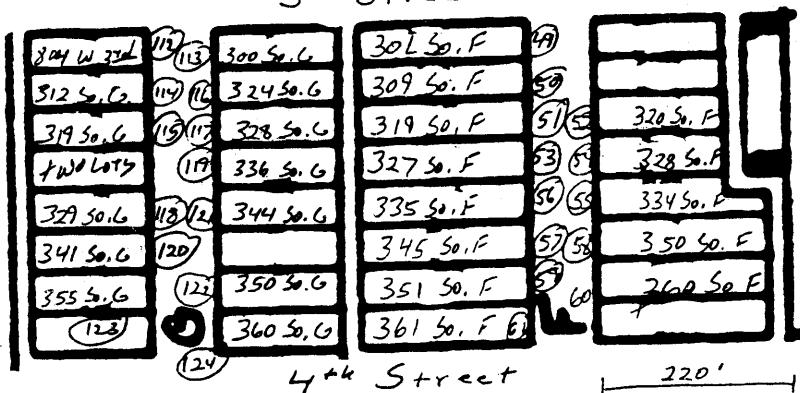 804 W 3rd
312 So. G
319 So. G
two Lots
329 So. G
341 So. G
355 So. G
123
112
113
114
116
115
117
119
118
120
124
300 So. G
324 So. G
328 So. G
336 So. G
344 So. G
350 So. G
360 So. G
301 So. F
309 So. F
319 So. F
327 So. F
335 So. F
345 So. F
351 So. F
361 So. F
49
50
51
53
56
55
57
58
60
320 So. F
328 So. F
334 So. F
350 So. F
360 So F
4th Street
220'